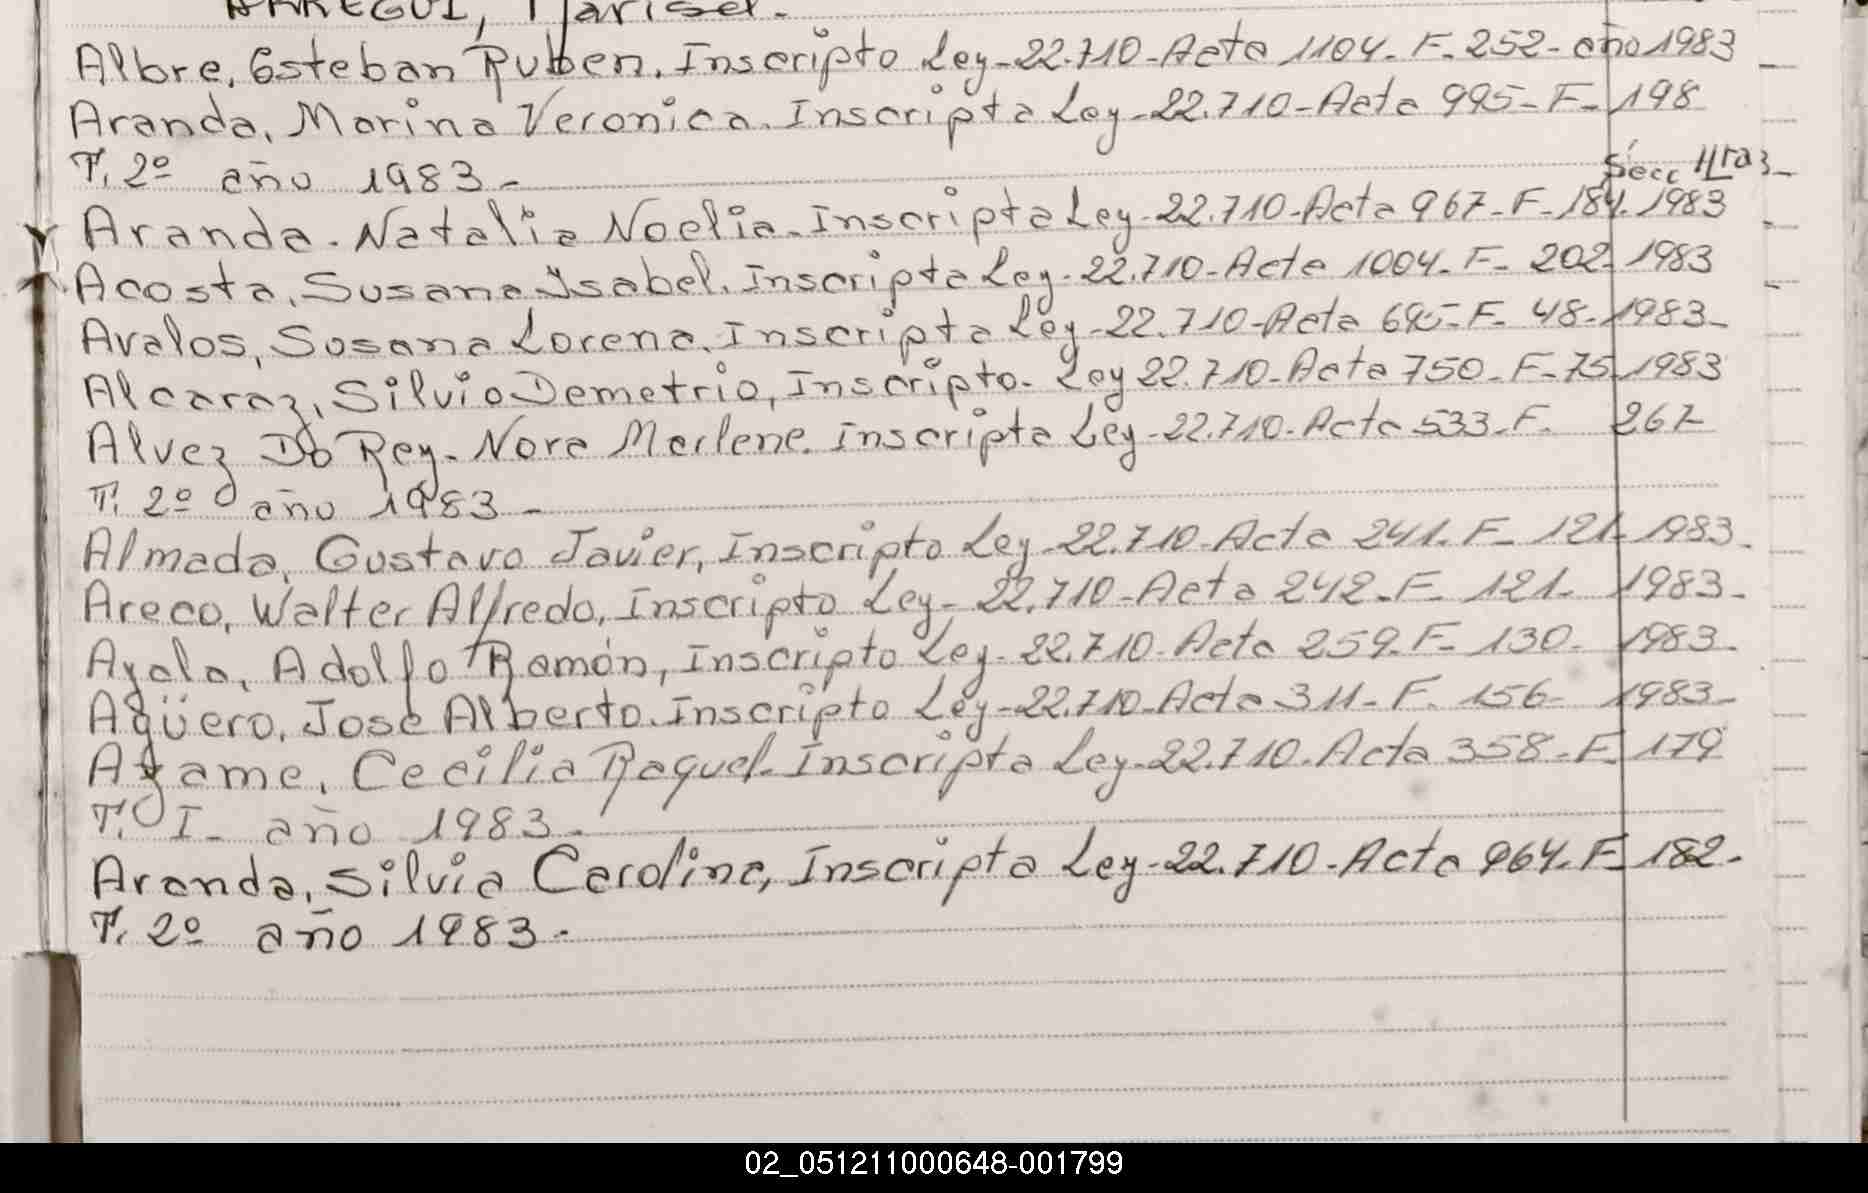 ARREGUI, Marisel.
Albre, Esteban Ruben. Inscripto Ley-22.710-Acta 1104-F-252-año 1983
Aranda, Marina Veronica. Inscripta Ley-22.710-Acta 995-F-198
T. 2º año 1983-
Secc Hras-
Aranda. Natalia Noelia-Inscripta Ley-22.710-Acta 967-F-184.1983
Acosta, Susana Ysabel. Inscripta Ley-22.710-Acta 1004-F-202 1983
Avalos, Sosana Lorena. Inscripta Ley-22.710-Acta 695-F-48-1983-
Alcaraz, Silvio Demetrio, Inscripto-Ley 22.710-Acta 750-F-75 1983
Alvez Do Rey-Nora Marlene. Inscripta Ley-22.710-Acta 533-F. 267
T. 2º año 1983-
Almada, Gustavo Javier, Inscripto Ley-22.710-Acta 241-F-121-1983-
Areco, Walter Alfredo, Inscripto Ley-22.710-Acta 242-F-121- 1983-
Ayala, Adolfo Ramón, Inscripto Ley-22.710-Acta 259-F-130- 1983-
Agüero, José Alberto. Inscripto Ley-22.710-Acta 311-F. 156- 1983-
Ayame, Cecilia Raquel-Inscripta Ley-22.710-Acta 358-F 179
T. I- año 1983-
Aranda, Silvia Carolina, Inscripta Ley-22.710-Acta 964-F 182-
T. 2º año 1983-
02_051211000648-001799